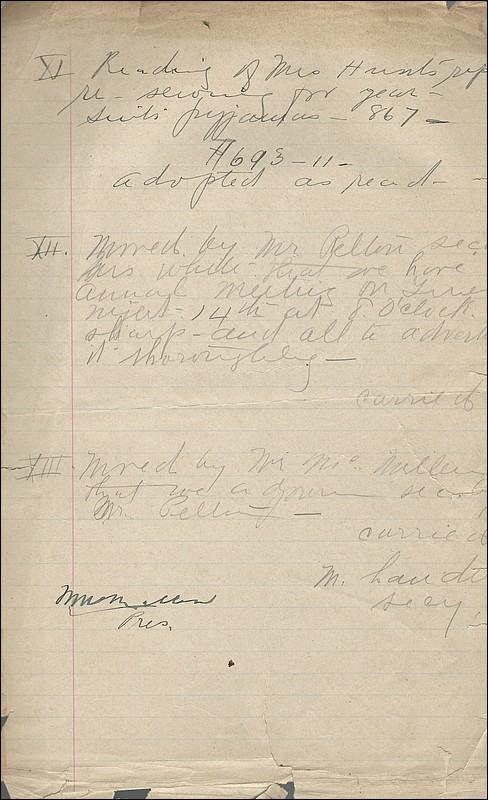 XI Reading of Mrs Hunt's rep
re- sewing for year -
suits pyjamas - 867 -
#693-11-
adopted as read -
XII. Moved by Mr Pelton sec
Mrs White that we have
annual meeting on
night - 14th at 8 O'clock
sharp - and all to advert
it thoroughly -
carried
XIII. Moved by Mr Mc Millen
that we adjourn
Mr. Pelton -
carried
M.
secy.
Pres.